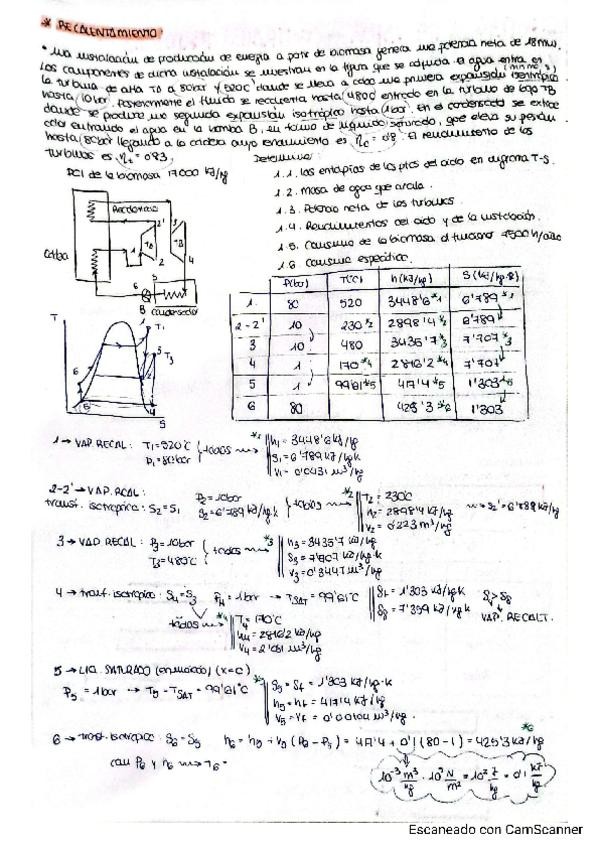 * RECALENTAMIENTO:
• Una instalación de producción de energía a partir de biomasa genera una potencia neta de 18MW.
Los componentes de dicha instalación se muestran en la figura que se adjunta. El agua entra en
la turbina de alta TA a 80bar y 520C donde se lleva a cabo una primera expansión isentrópica
hasta 10bar. Posteriormente el fluido se recalienta hasta 480C entrando en la turbina de baja TB
donde se produce una segunda expansión isotrópica hasta 1bar. En el condensador se extrae
calor entrando el agua en la bomba B, en forma de líquido saturado, que eleva su presión
hasta 80bar llegando a la caldera cuyo rendimiento es ηc = 0'8. El rendimiento de las
turbinas es ηt = 0'83.
Determine:
PCI de la biomasa 17000 kJ/kg
1.1. Las entalpías de los ptos del ciclo en diagrama T-S.
1.2. Masa de agua que circula.
1.3. Potencia neta de las turbinas
1.4. Rendimientos del ciclo y de la instalación.
1.5. Consumo de la biomasa al funcionar 7500 h/año
1.6 Consumo específico.
Recalentador
Caldera
TA
TB
1
2'
3
2
4
6
5
B
Condensador
T
T1
T3
1
3
6
5
2
4
S
P(bar) T(ºC) h(kJ/kg) S(kJ/kg·K)
1. 80 520 3448'6 *1 6'789 *1
2-2' 10 230 *2 2898'4 *2 6'789
3 10 480 3435'7 *3 7'707 *3
4 1 170 *4 2816'2 *4 7'707
5 1 99'61 *5 417'4 *5 1'303 *5
6 80 425'3 *6 1'303
1 → VAP. RECAL: T1 = 520ºC
P1 = 80bar
tablas *1
h1 = 3448'6 kJ/kg
S1 = 6'789 kJ/kg·K
V1 = 0'0431 m³/kg
2-2' → VAP. RCAL:
transf. isotrópica: S2 = S1
P2 = 10bar
S2 = 6'789 kJ/kg·K
tablas *2
T2 = 230ºC
h2 = 2898'4 kJ/kg
V2 = 0'223 m³/kg
S2' = 6'789 kJ/kg
3 → VAP. RECAL: P3 = 10bar
T3 = 480ºC
tablas *3
h3 = 3435'7 kJ/kg
S3 = 7'707 kJ/kg·K
V3 = 0'3447 m³/kg
4 → transf. isotrópica: S4 = S3 P4 = 1bar → TSAT = 99'61ºC
Sf = 1'303 kJ/kg·K
Sg = 7'359 kJ/kg·K
S>Sg
VAP. RECALT.
tablas *4
T4 = 170ºC
h4 = 2816'2 kJ/kg
V4 = 2'031 m³/kg
5 → LIQ. SATURADO (enunciado) (x=0)
P5 = 1bar → T5 = TSAT = 99'61ºC *5
S5 = Sf = 1'303 kJ/kg·K
h5 = hf = 417'4 kJ/kg
V5 = Vf = 0'00104 m³/kg.
6 → transf. isotrópica: S6 = S5 h6 = h5 + V5 (P6 - P5) = 417'4 + 0'1 (80 - 1) = 425'3 kJ/kg *6
con P6 y h6 → T6
10⁻³ m³/kg · 10⁵ N/m² = 10² J/kg = 0'1 kJ/kg
Escaneado con CamScanner